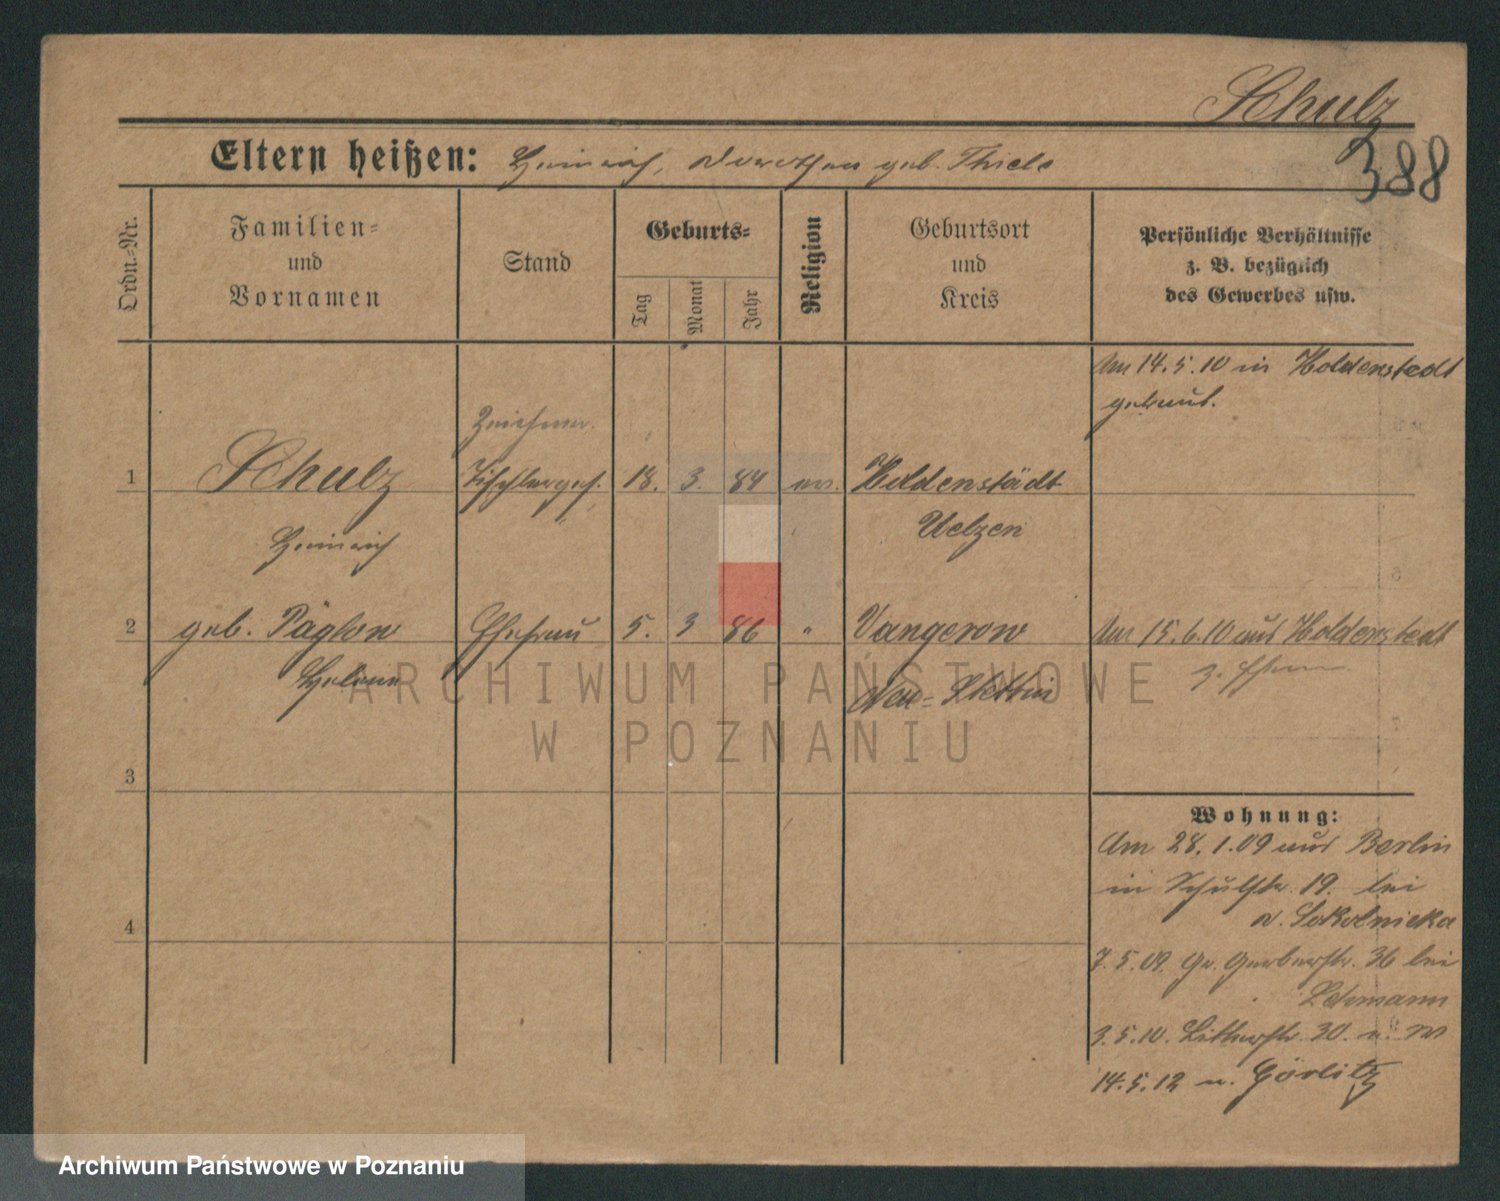 Schulz
388
Eltern heißen: Heinrich, Dorothea geb. Thiele
Ordn.-Nr.
Familien-
und
Vornamen
Stand
Geburts-
Tag
Monat
Jahr
Religion
Geburtsort
und
Kreis
Persönliche Verhältnisse
z. B. bezüglich
des Gewerbes usw.
Am 14.5.10 in Holdenstedt
getraut.
Zeichner.
1 Schulz Tischlerges. 18. 3. 84 ev. Holdenstädt
Heinrich Uelzen
2 geb. Päglow Ehefrau 5. 3 86 " Vangerow
Helene Neu-Stettin
Am 15.6.10 aus Holdenstedt
z. Ehem
3
4
Wohnung:
Am 28.1.09 aus Berlin
in Schulstr. 19. bei
v. Sokolnicka
7.5.09. Gr. Gerberstr. 36 bei
Lehmann
3.5.10. Ritterstr. 30. n. W
14.5.12 n. Görlitz
ARCHIWUM PAŃSTWOWE
W POZNANIU
Archiwum Państwowe w Poznaniu